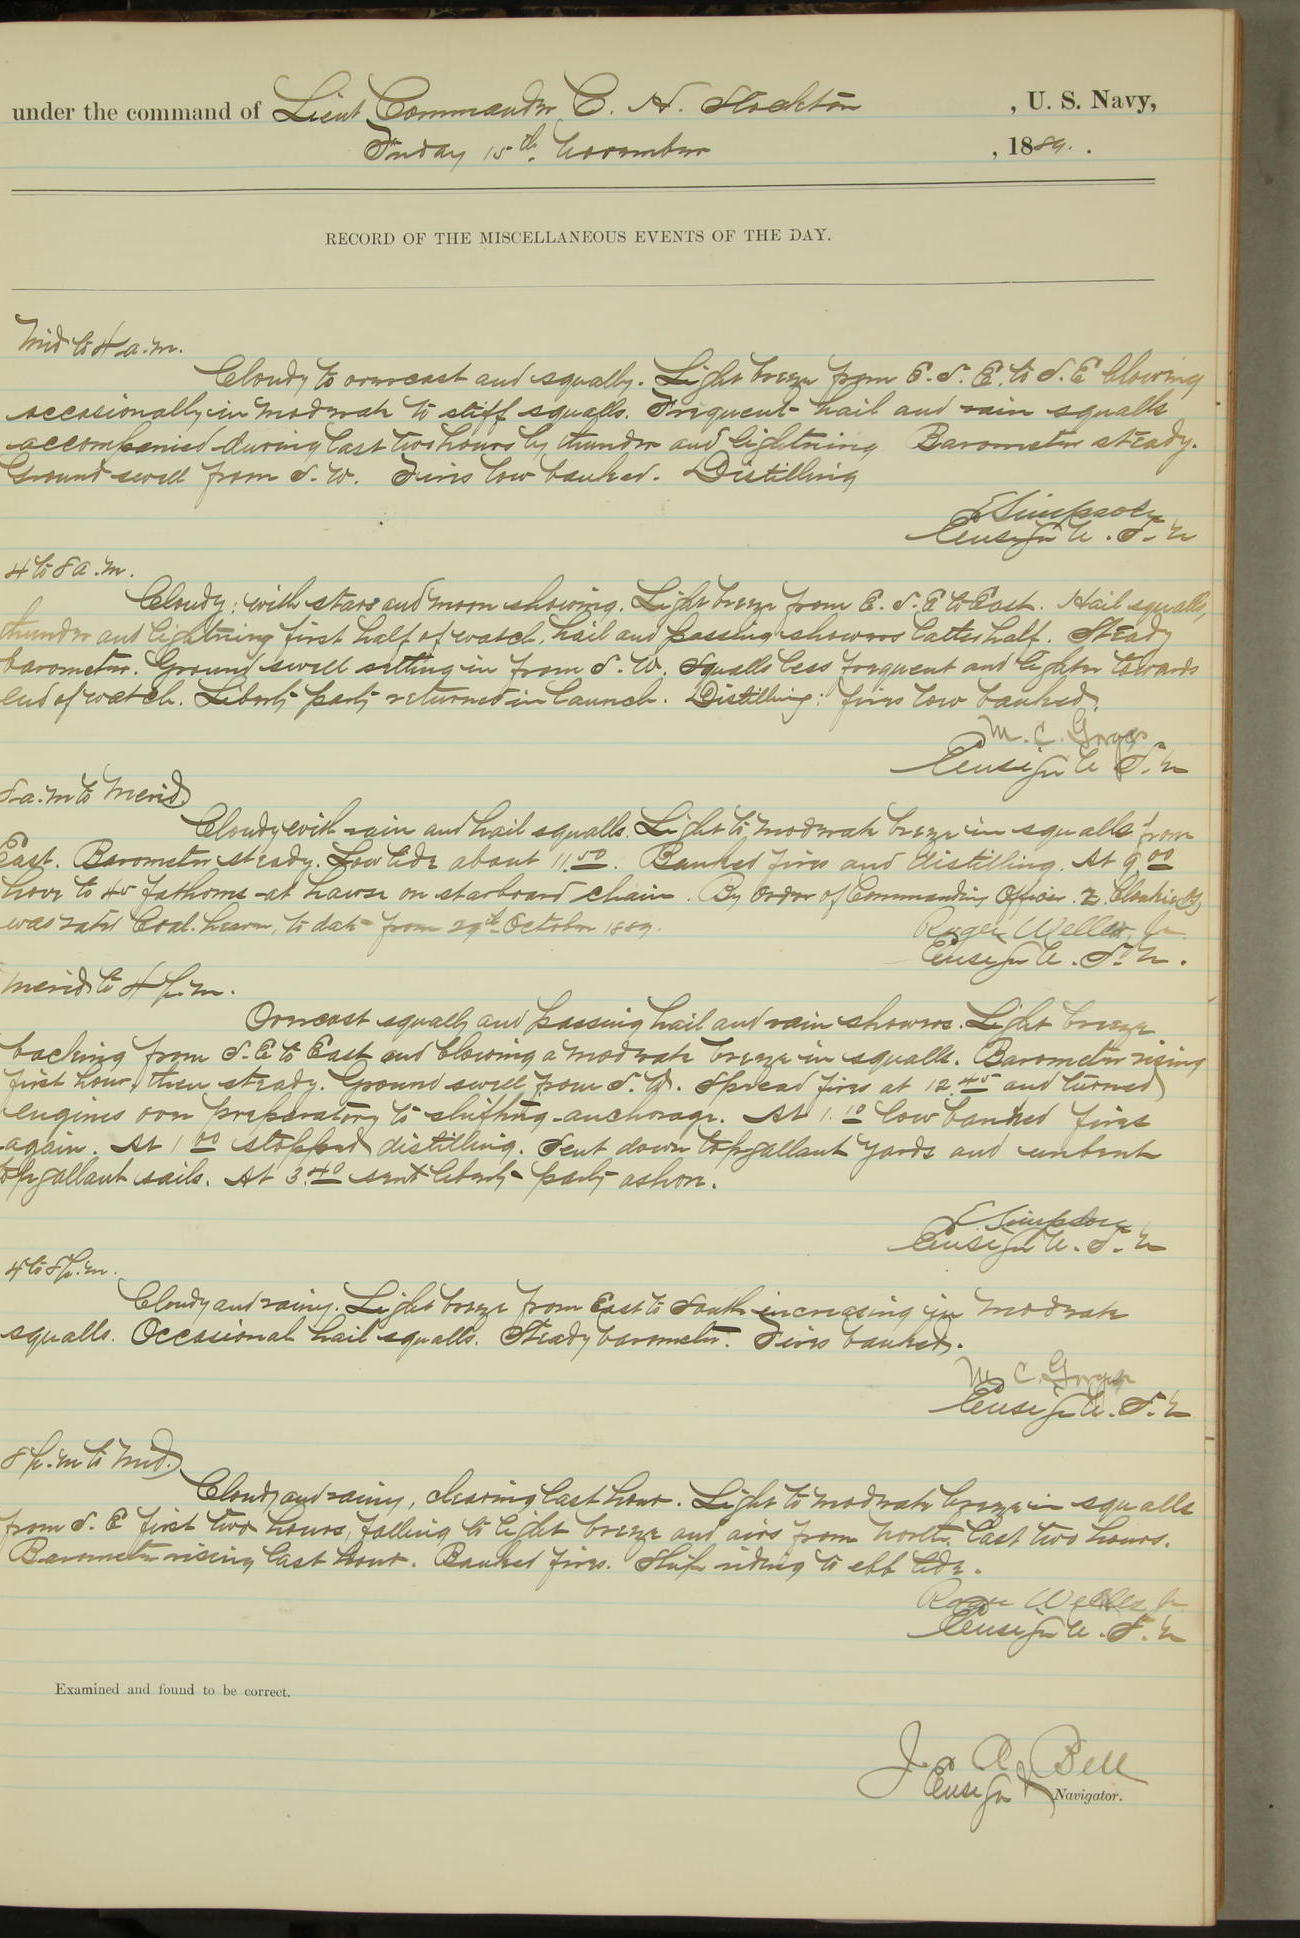 under the command of Lieut Commander C. H. Stockton, U. S. Navy,
Friday 15th November, 1889.
RECORD OF THE MISCELLANEOUS EVENTS OF THE DAY.
Mid to 4 a.m.
Cloudy to overcast and squally. Light breeze from E.S.E. to S.E blowing
occasionally in moderate to stiff squalls. Frequent hail and rain squalls
accompanied during last two hours by thunder and lightning Barometer steady.
Ground swell from S.W. Fires low banked. Distilling
E Simpson
Ensign U.S.N
4 to 8 a.m.
Cloudy; with stars and moon showing. Light breeze from E.S.E to East. Hail squalls,
thunder and lightning first half of watch, hail and passing showers latter half. Steady
barometer. Ground swell setting in from S.W. Squalls less frequent and lighter towards
end of watch. Liberty party returned in launch. Distilling: fires low banked.
M. C. Gorgas
Ensign U S.N
8 a.m to Merid
Cloudy with rain and hail squalls. Light to moderate breeze in squalls from
East. Barometer steady. Low tide about 11.50. Banked fires and distilling. At 9 00
hove to 45 fathoms at hawse on starboard chain. By order of Commanding Officer
was rated Coal. heaver, to date from 29th October 1889.
Roger Welles, Jr
Ensign U.S.N.
Merid to 4 p.m.
Overcast squally and passing hail and rain showers. Light breeze
backing from S.E to East and blowing a moderate breeze in squalls. Barometer rising
first hour, then steady. Ground swell from S.W. Spread fires at 12.45 and turned
engines over preparatory to shifting anchorage. At 1.10 low banked fires
again. At 1 00 stopped distilling. Sent down topgallant yards and unbent
topgallant sails. At 3.40 sent liberty party ashore.
E Simpson
Ensign U.S.N
4 to 8 p.m.
Cloudy and rainy. Light breeze from East to South increasing in moderate
squalls. Occasional hail squalls. Steady barometer. Fires banked.
M C. Gorgas
Ensign U.S.N
8 p.m to Mid.
Cloudy and rainy, clearing last hour. Light to moderate breeze in squalls
from S.E first two hours, falling to light breeze and airs from North last two hours.
Barometer rising last hour. Banked fires. Ship riding to ebb tide.
Roger Welles Jr
Ensign U.S.N
Examined and found to be correct.
J. A. Bell
Ensign Navigator.